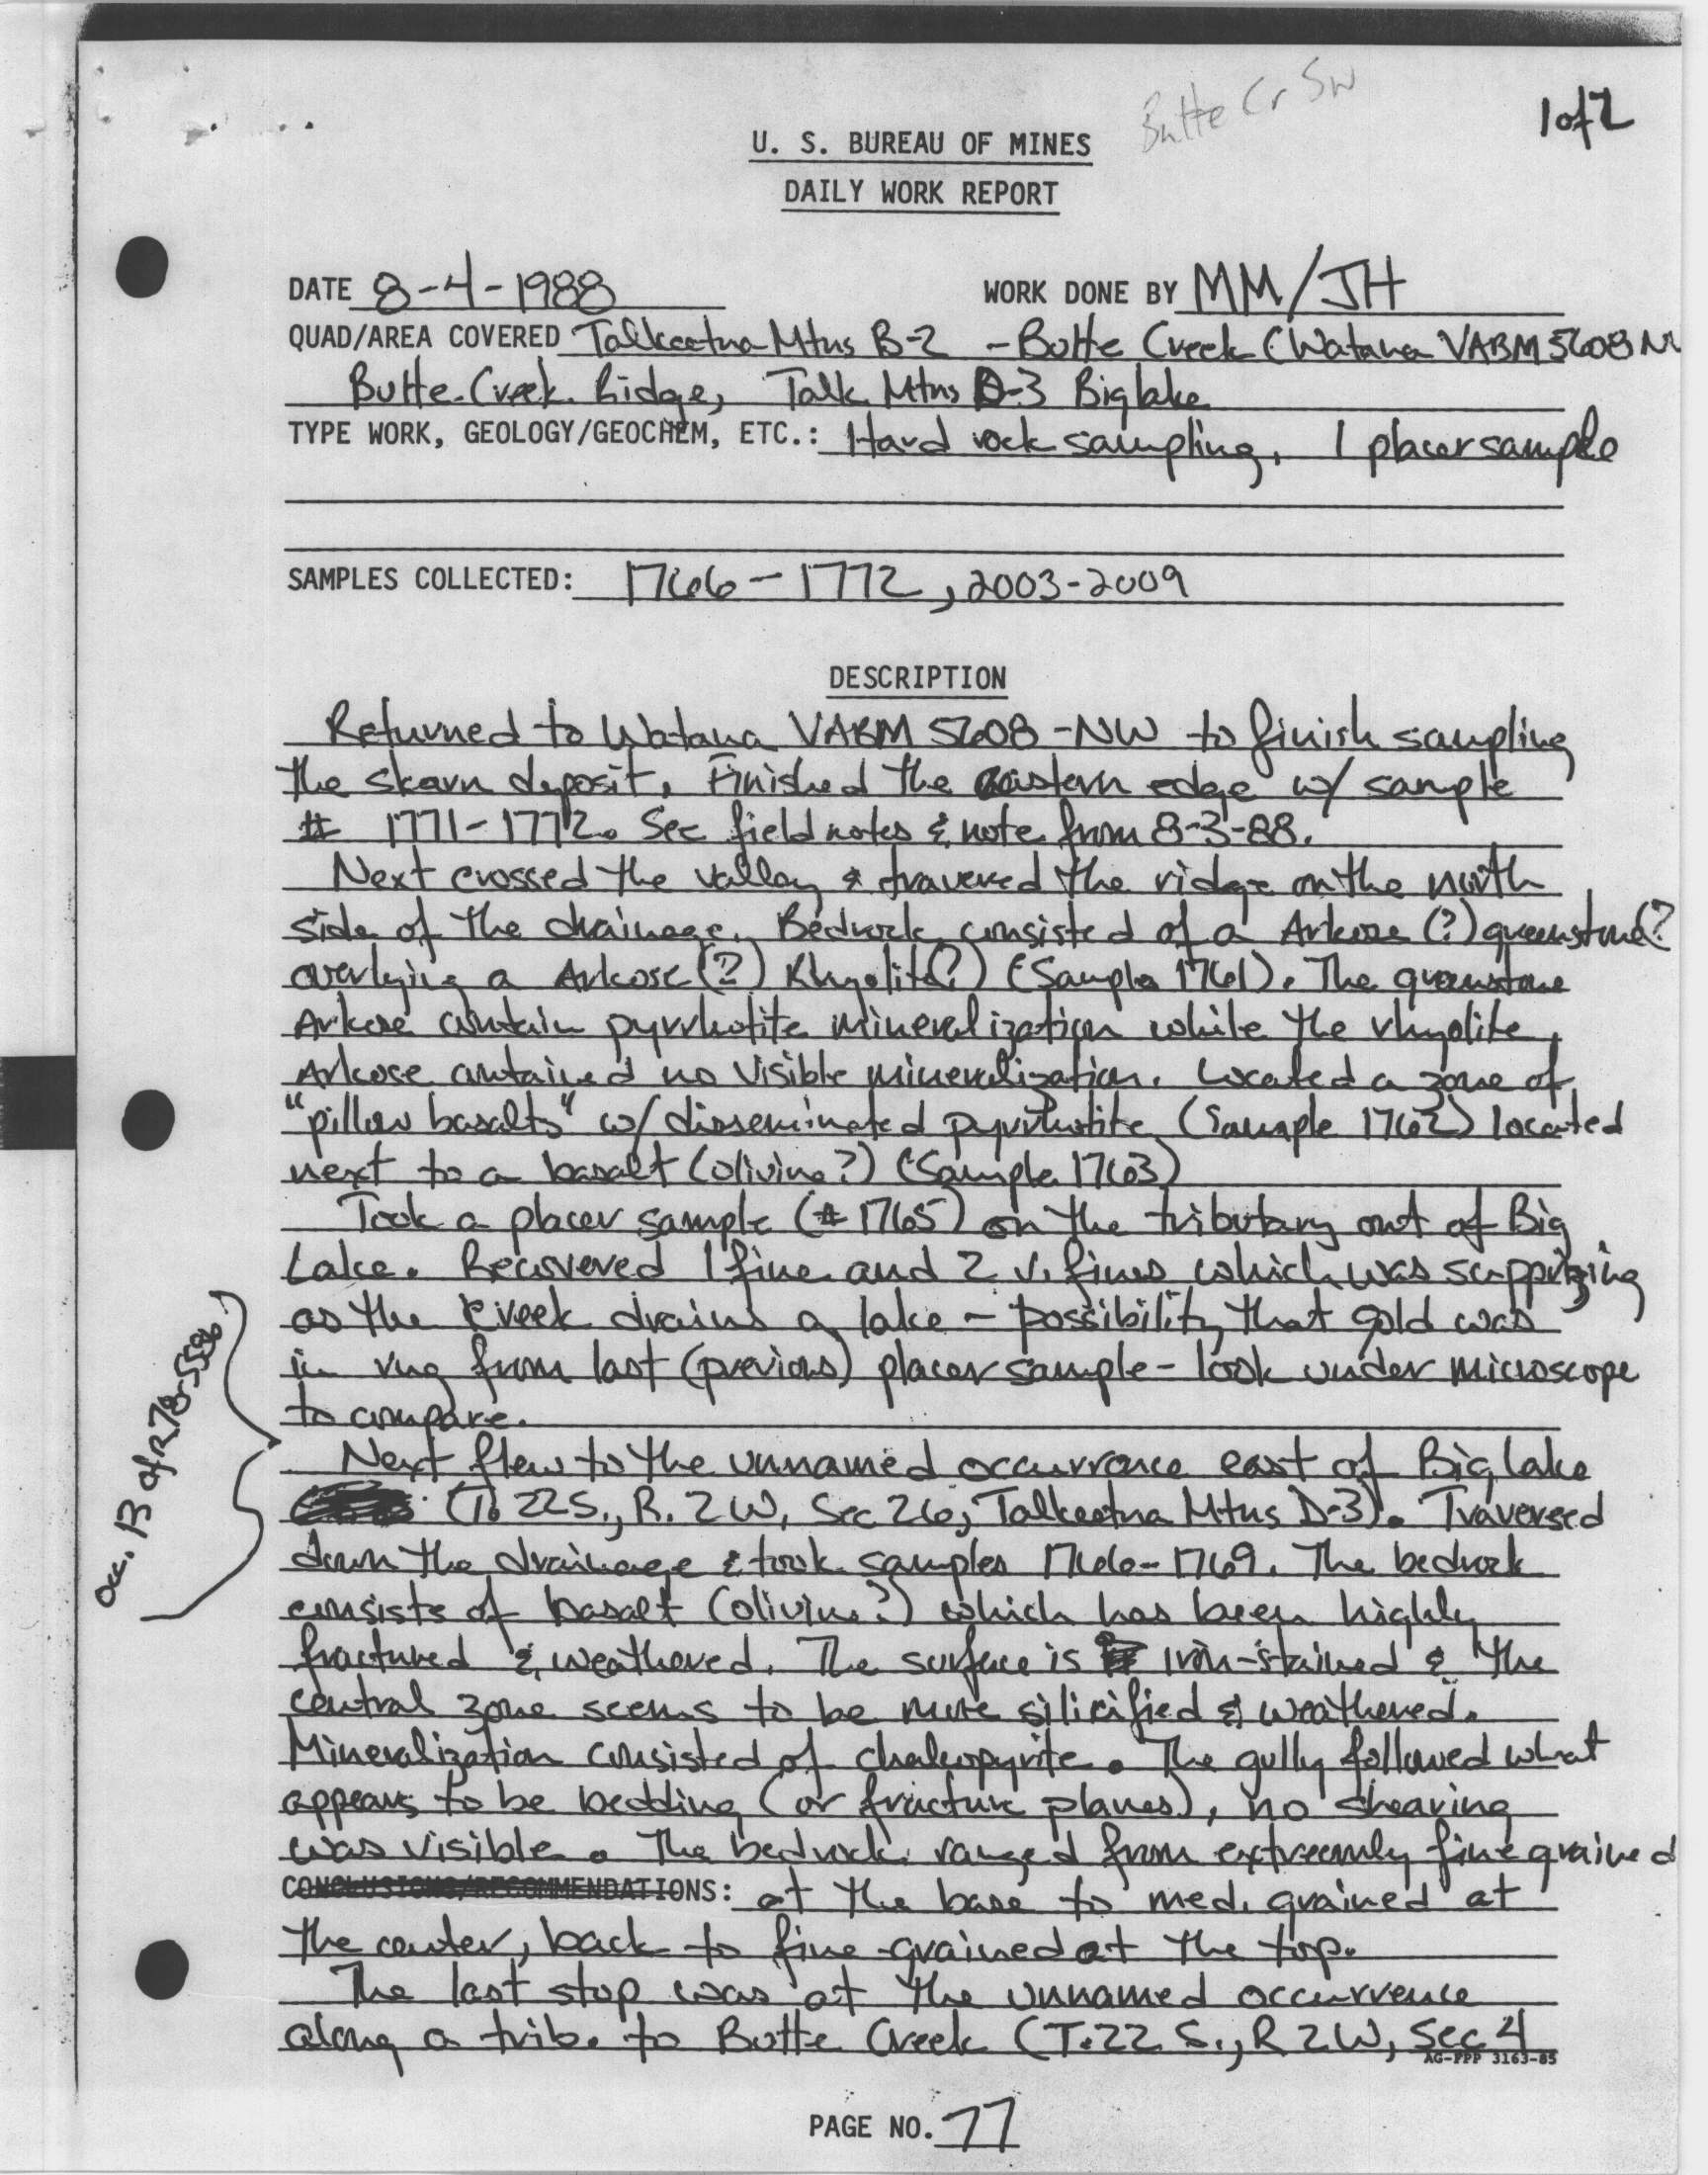 Butte Cr SW
1 of 2
U. S. BUREAU OF MINES
DAILY WORK REPORT
DATE 8-4-1988 WORK DONE BY MM/JH
QUAD/AREA COVERED Talkeetna Mtns B-2 - Butte Creek (Watana VABM 5608 NW
Butte Creek Ridge, Talk Mtns D-3 Big lake
TYPE WORK, GEOLOGY/GEOCHEM, ETC.: Hard rock sampling, 1 placer sample
SAMPLES COLLECTED: 1766-1772, 2003-2009
DESCRIPTION
Returned to Watana VABM 5608-NW to finish sampling
the skarn deposit. Finished the eastern edge w/ sample
# 1771-1772. See field notes & note from 8-3-88.
Next crossed the valley & traversed the ridge on the north
side of the drainage. Bedrock consisted of a Arkose (?) greenstone(?
overlying a Arkose (?) Rhyolite(?) (Sample 1761). The greenstone
Arkose contain pyrrhotite mineralization while the rhyolite,
Arkose contained no visible mineralization. Located a zone of
"pillow basalts" w/ disseminated pyrrhotite (Sample 1762) located
next to a basalt (olivine?) (Sample 1763)
Took a placer sample (# 1765) on the tributary out of Big
Lake. Recovered 1 fine and 2 v. fines which was supprizing
as the creek drains a lake - possibility that gold was
in rug from last (previous) placer sample - look under microscope
to compare.
Next flew to the unnamed occurrence east of Big lake
(T. 22S., R. 2W, Sec 26, Talkeetna Mtns D-3). Traversed
down the drainage & took samples 1766-1769. The bedrock
consists of basalt (olivine?) which has been highly
fractured & weathered. The surface is iron-stained & the
central zone seems to be more silicified & weathered.
Mineralization consisted of chalcopyrite. The gully followed what
appears to be bedding (or fracture planes), no shearing
was visible. The bedrock ranged from extreemly fine grained
CONCLUSIONS/RECOMMENDATIONS: at the base to med. grained at
the center, back to fine-grained at the top.
The last stop was at the unnamed occurrence
along a trib. to Butte Creek (T.22 S., R 2W, Sec 4
AG-FPP 3163-85
PAGE NO. 77
Occ. 13 of R.78-558b